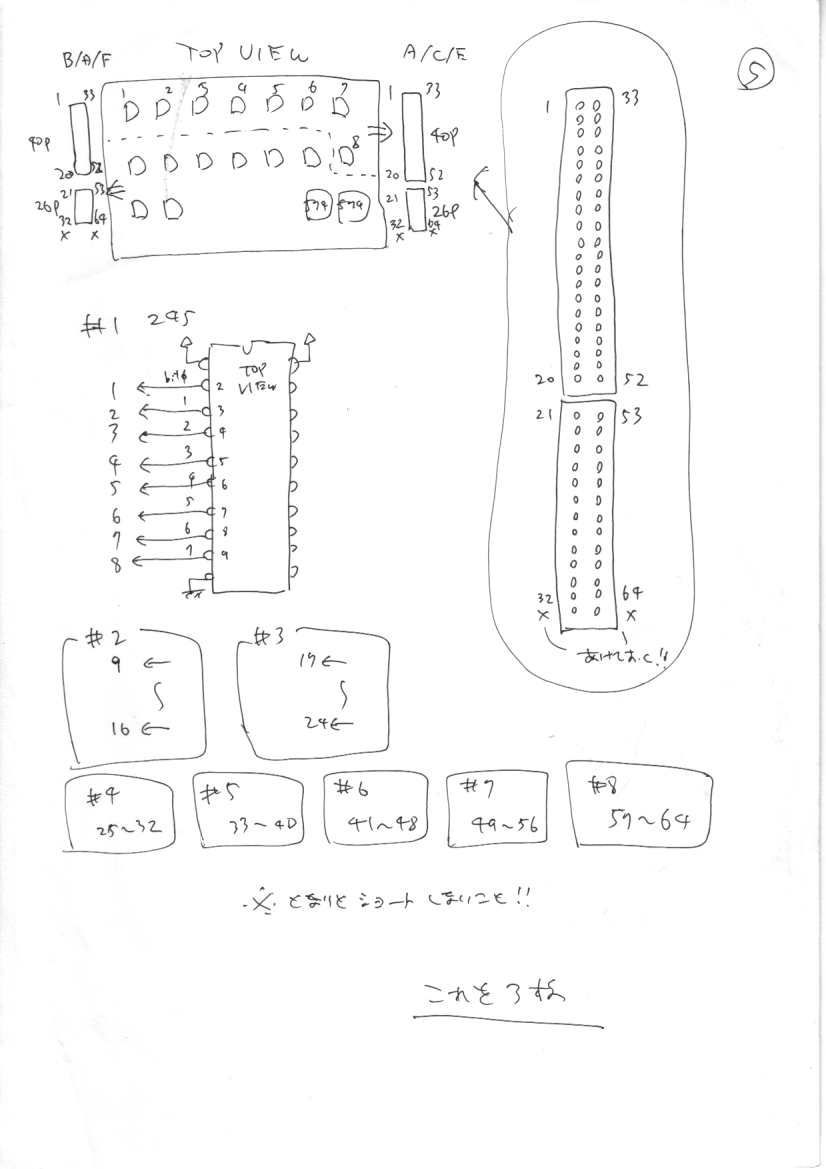 5
B/A/F
TOP VIEW
A/C/E
1 33
1 2 3 4 5 6 7
1 33
40P
40P
8
20 52
20 52
21 53
21 53
26P
574 574
26P
32 64
32 64
× ×
× ×
1 33
20 52
21 53
32 64
× ×
あけておく!!
#1 245
TOP
VIEW
1 bit0 2
2 1 3
3 2 4
4 3 5
5 4 6
6 5 7
7 6 8
8 7 9
#2
9 ←
16 ←
#3
17 ←
24 ←
#4
25~32
#5
33~40
#6
41~48
#7
49~56
#8
57~64
※ となりとショートしないこと!!
これを3枚